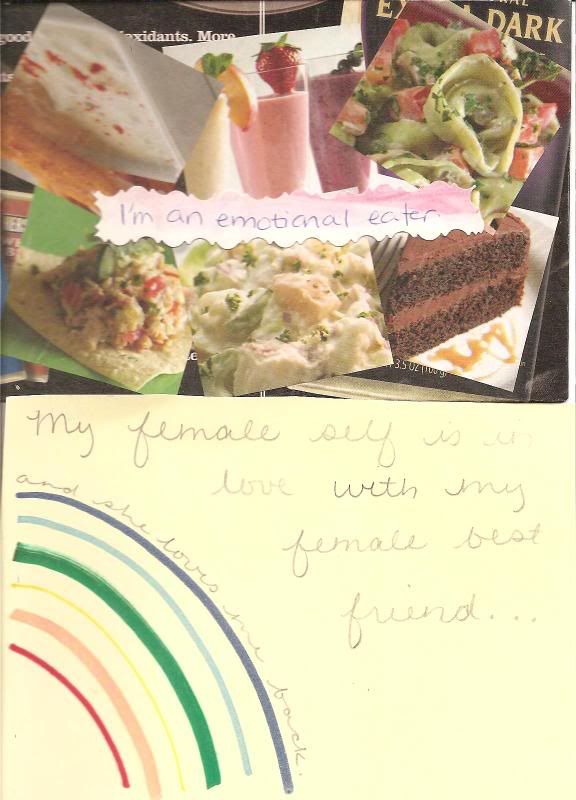 good
oxidants. More
EX
DARK
I'm an emotional eater.
3.5 OZ (100 g)
My female self is in
love with my
female best
friend...
and she loves me back.